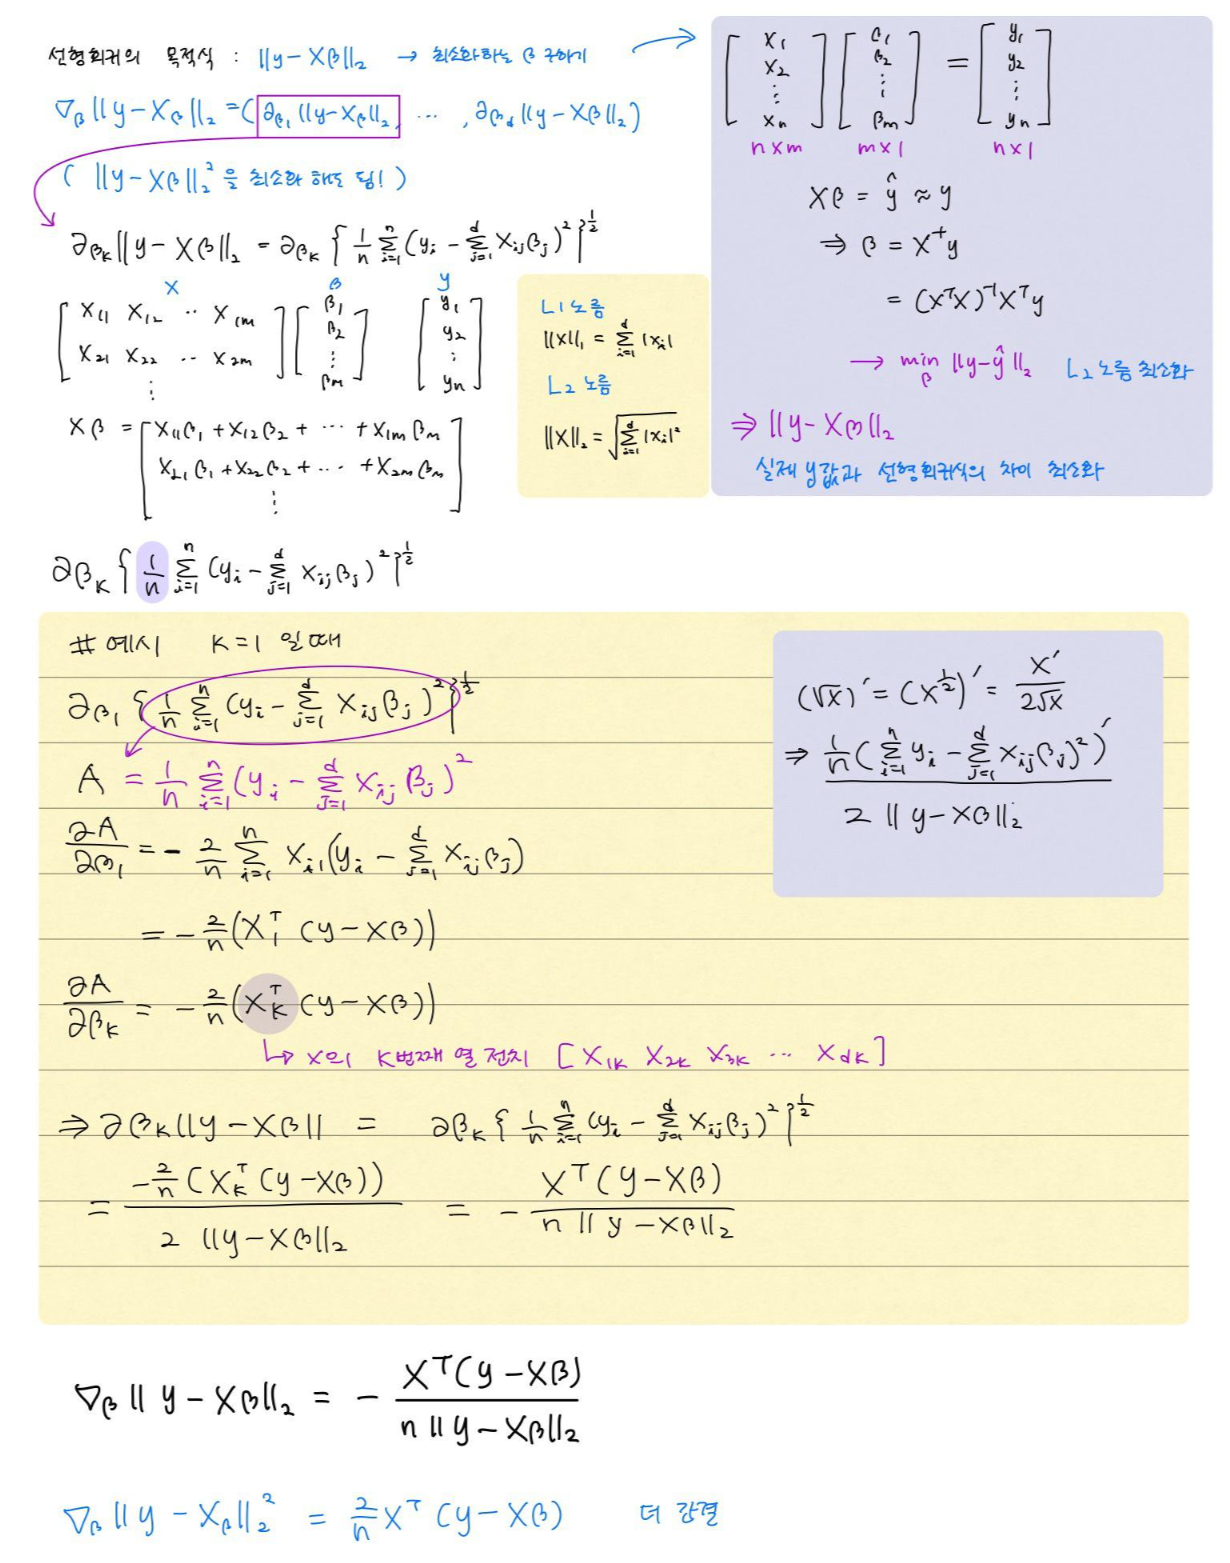 선형회귀의 목적식 : ||y-Xβ||₂ → 최소화하는 β 구하기
∇β ||y-Xβ||₂ = (∂β₁ ||y-Xβ||₂, ⋯ , ∂βd ||y-Xβ||₂)
( ||y-Xβ||₂² 을 최소화 해도 됨! )
∂βₖ ||y-Xβ||₂ = ∂βₖ { 1/n Σᵢ₌₁ⁿ (yᵢ - Σⱼ₌₁ᵈ Xᵢⱼβⱼ)² }^½
X β y
[ X₁₁ X₁₂ ‥ X₁ₘ ] [ β₁ ] [ y₁ ]
[ X₂₁ X₂₂ ‥ X₂ₘ ] [ β₂ ] [ y₂ ]
⋮ ⋮ ⋮
βₘ yₙ
Xβ = [ X₁₁β₁ + X₁₂β₂ + ⋯ + X₁ₘβₘ
X₂₁β₁ + X₂₂β₂ + ⋯ + X₂ₘβₘ
⋮ ]
L1 노름
||X||₁ = Σᵢ₌₁ᵈ |xᵢ|
L2 노름
||X||₂ = √(Σᵢ₌₁ᵈ |xᵢ|²)
[ X₁ ] [ β₁ ] = [ y₁ ]
[ X₂ ] [ β₂ ] [ y₂ ]
⋮ ⋮ ⋮
[ Xn ] [ βm ] [ yn ]
n×m m×1 n×1
Xβ = ŷ ≈ y
⇒ β = X⁺y
= (XᵀX)⁻¹Xᵀy
→ min β ||y-ŷ||₂ L₂ 노름 최소화
⇒ ||y-Xβ||₂
실제 y값과 선형회귀식의 차이 최소화
∂βₖ { 1/n Σᵢ₌₁ⁿ (yᵢ - Σⱼ₌₁ᵈ Xᵢⱼβⱼ)² }^½
# 예시 K=1 일때
∂β₁ { 1/n Σᵢ₌₁ⁿ (yᵢ - Σⱼ₌₁ᵈ Xᵢⱼβⱼ)² }^½
A = 1/n Σᵢ₌₁ⁿ (yᵢ - Σⱼ₌₁ᵈ Xᵢⱼβⱼ)²
∂A/∂β₁ = - 2/n Σᵢ₌₁ⁿ Xᵢ₁(yᵢ - Σⱼ₌₁ᵈ Xᵢⱼβⱼ)
= - 2/n (X₁ᵀ (y-Xβ))
∂A/∂βₖ = - 2/n (Xₖᵀ (y-Xβ))
↳ X의 K번째 열 전치 [X₁ₖ X₂ₖ X₃ₖ ⋯ Xdₖ]
(√x)′ = (x^½)′ = x′/2√x
⇒ 1/n (Σᵢ₌₁ⁿ yᵢ - Σⱼ₌₁ᵈ Xᵢⱼβⱼ)²)′ / 2 ||y-Xβ||₂
⇒ ∂βₖ ||y-Xβ|| = ∂βₖ { 1/n Σᵢ₌₁ⁿ (yᵢ - Σⱼ₌₁ᵈ Xᵢⱼβⱼ)² }^½
= -2/n (Xₖᵀ (y-Xβ)) / 2 ||y-Xβ||₂ = - Xᵀ(y-Xβ) / n ||y-Xβ||₂
∇β ||y-Xβ||₂ = - Xᵀ(y-Xβ) / n ||y-Xβ||₂
∇β ||y-Xβ||₂² = 2/n Xᵀ (y-Xβ) 더 간결